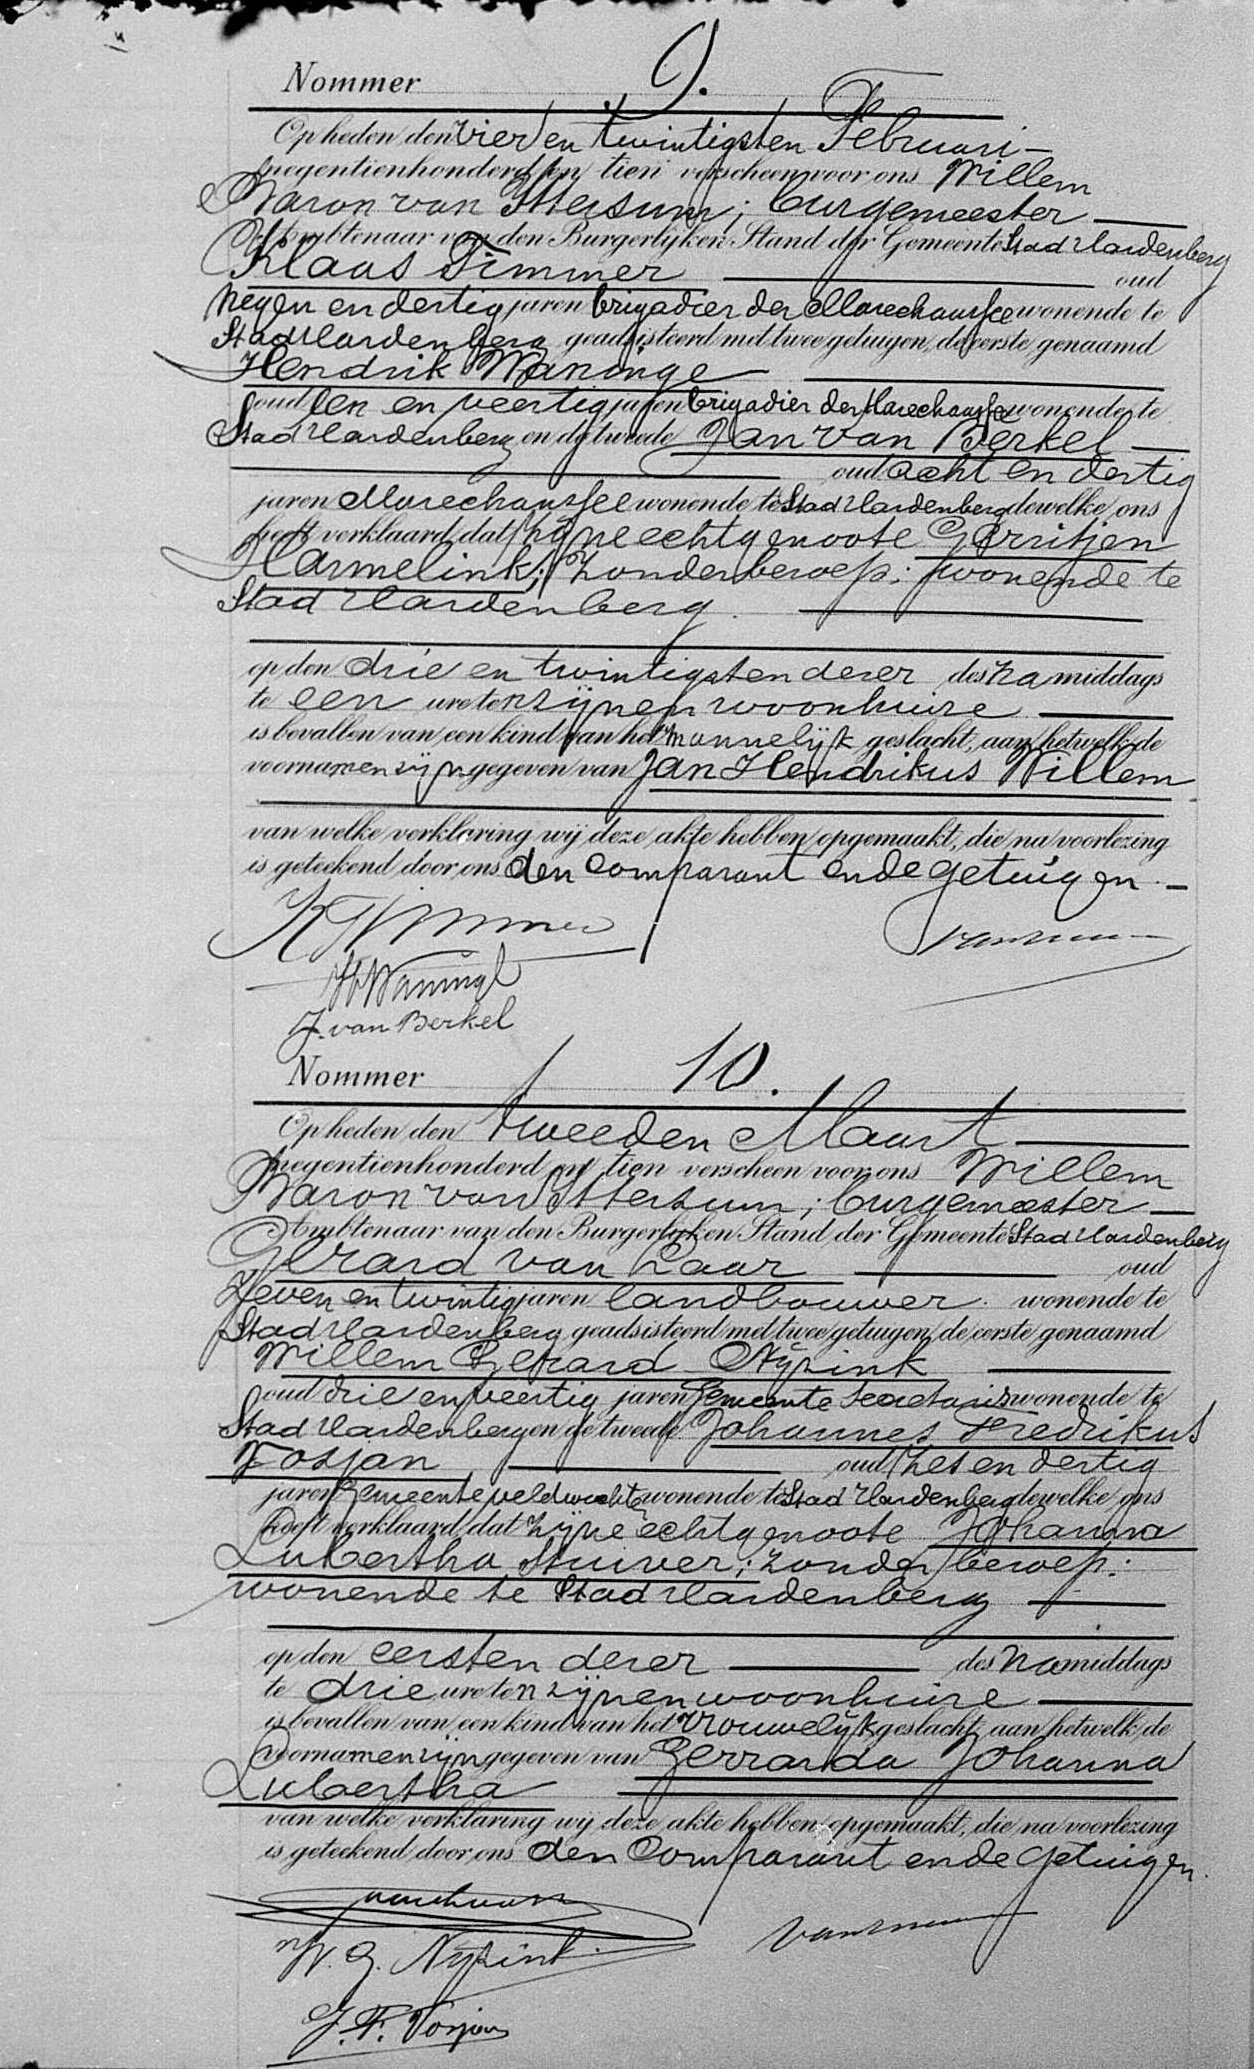 Nommer 9.
Op heden den vier en twintigsten Februari
negentienhonderd en tien verscheen voor ons Willem
Baron van Ittersum; burgemeester
Ambtenaar van den Burgerlijken Stand der Gemeente Stad Hardenberg
Klaas Timmer oud
negen en dertig jaren brigadier der Marechaussee wonende te
Stad Hardenberg geadsisteerd met twee getuigen, de eerste genaamd
Hendrik Waninge
oud een en veertig jaren brigadier der Marechaussee wonende te
Stad Hardenberg en de tweede Jan van Berkel
oud acht en dertig
jaren Marechaussee wonende te Stad Hardenberg dewelke ons
heeft verklaard, dat zijne echtgenoote Gerritjen
Harmelink; zonder beroep; wonende te
Stad Hardenberg.
op den drie en twintigsten dezer des namiddags
te een ure ten zijnen woonhuize
is bevallen van een kind van het mannelijk geslacht, aan hetwelk de
voornamen zijn gegeven van Jan Hendrikus Willem
van welke verklaring wij deze akte hebben opgemaakt, die na voorlezing
is geteekend door ons den comparant en de getuigen.
K Timmer
H Waninge
J. van Berkel
Nommer 10.
Op heden den tweeden Maart
negentienhonderd en tien verscheen voor ons Willem
Baron van Ittersum; burgemeester
Ambtenaar van den Burgerlijken Stand der Gemeente Stad Hardenberg
Gerard van Laar oud
zeven en twintig jaren landbouwer wonende te
Stad Hardenberg geadsisteerd met twee getuigen, de eerste genaamd
Willem Gerard Nijzink
oud drie en veertig jaren gemeente secretaris wonende te
Stad Hardenberg en de tweede Johannes Fredrikus
Vosjan oud zes en dertig
jaren gemeenteveldwachter wonende te Stad Hardenberg dewelke ons
heeft verklaard, dat zijne echtgenoote Johanna
Lubertha Stuiver; zonder beroep:
wonende te Stad Hardenberg
op den eersten dezer des namiddags
te drie ure ten zijnen woonhuize
is bevallen van een kind van het vrouwelijk geslacht, aan hetwelk de
voornamen zijn gegeven van Gerrarda Johanna
Lubertha
van welke verklaring wij deze akte hebben opgemaakt, die na voorlezing
is geteekend door ons den comparant en de getuigen.
W. G. Nijzink.
J. F. Vosjan